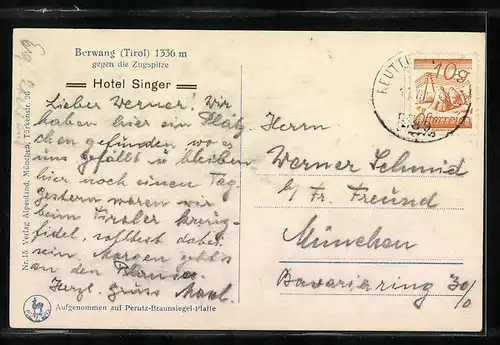 Berwang (Tirol) 1336 m
gegen die Zugspitze
Hotel Singer
Lieber Werner! Wir
haben hier ein Plätz-
chen gefunden wo es
uns gefällt u. bleiben
hier noch einen Tag
gestern waren wir
beim Tiroler kreuz-
fidel, solltest dabei
sein. Morgen geht's
an den
Herzl. Gruss
Herrn
Werner Schmid
b/ Fr. Freund
München
Bavariaring 30/0
REUTTE
10g
Nr. 15. Verlag Alpenland, München, Türkenstr. 26
Aufgenommen auf Perutz-Braunsiegel-Platte